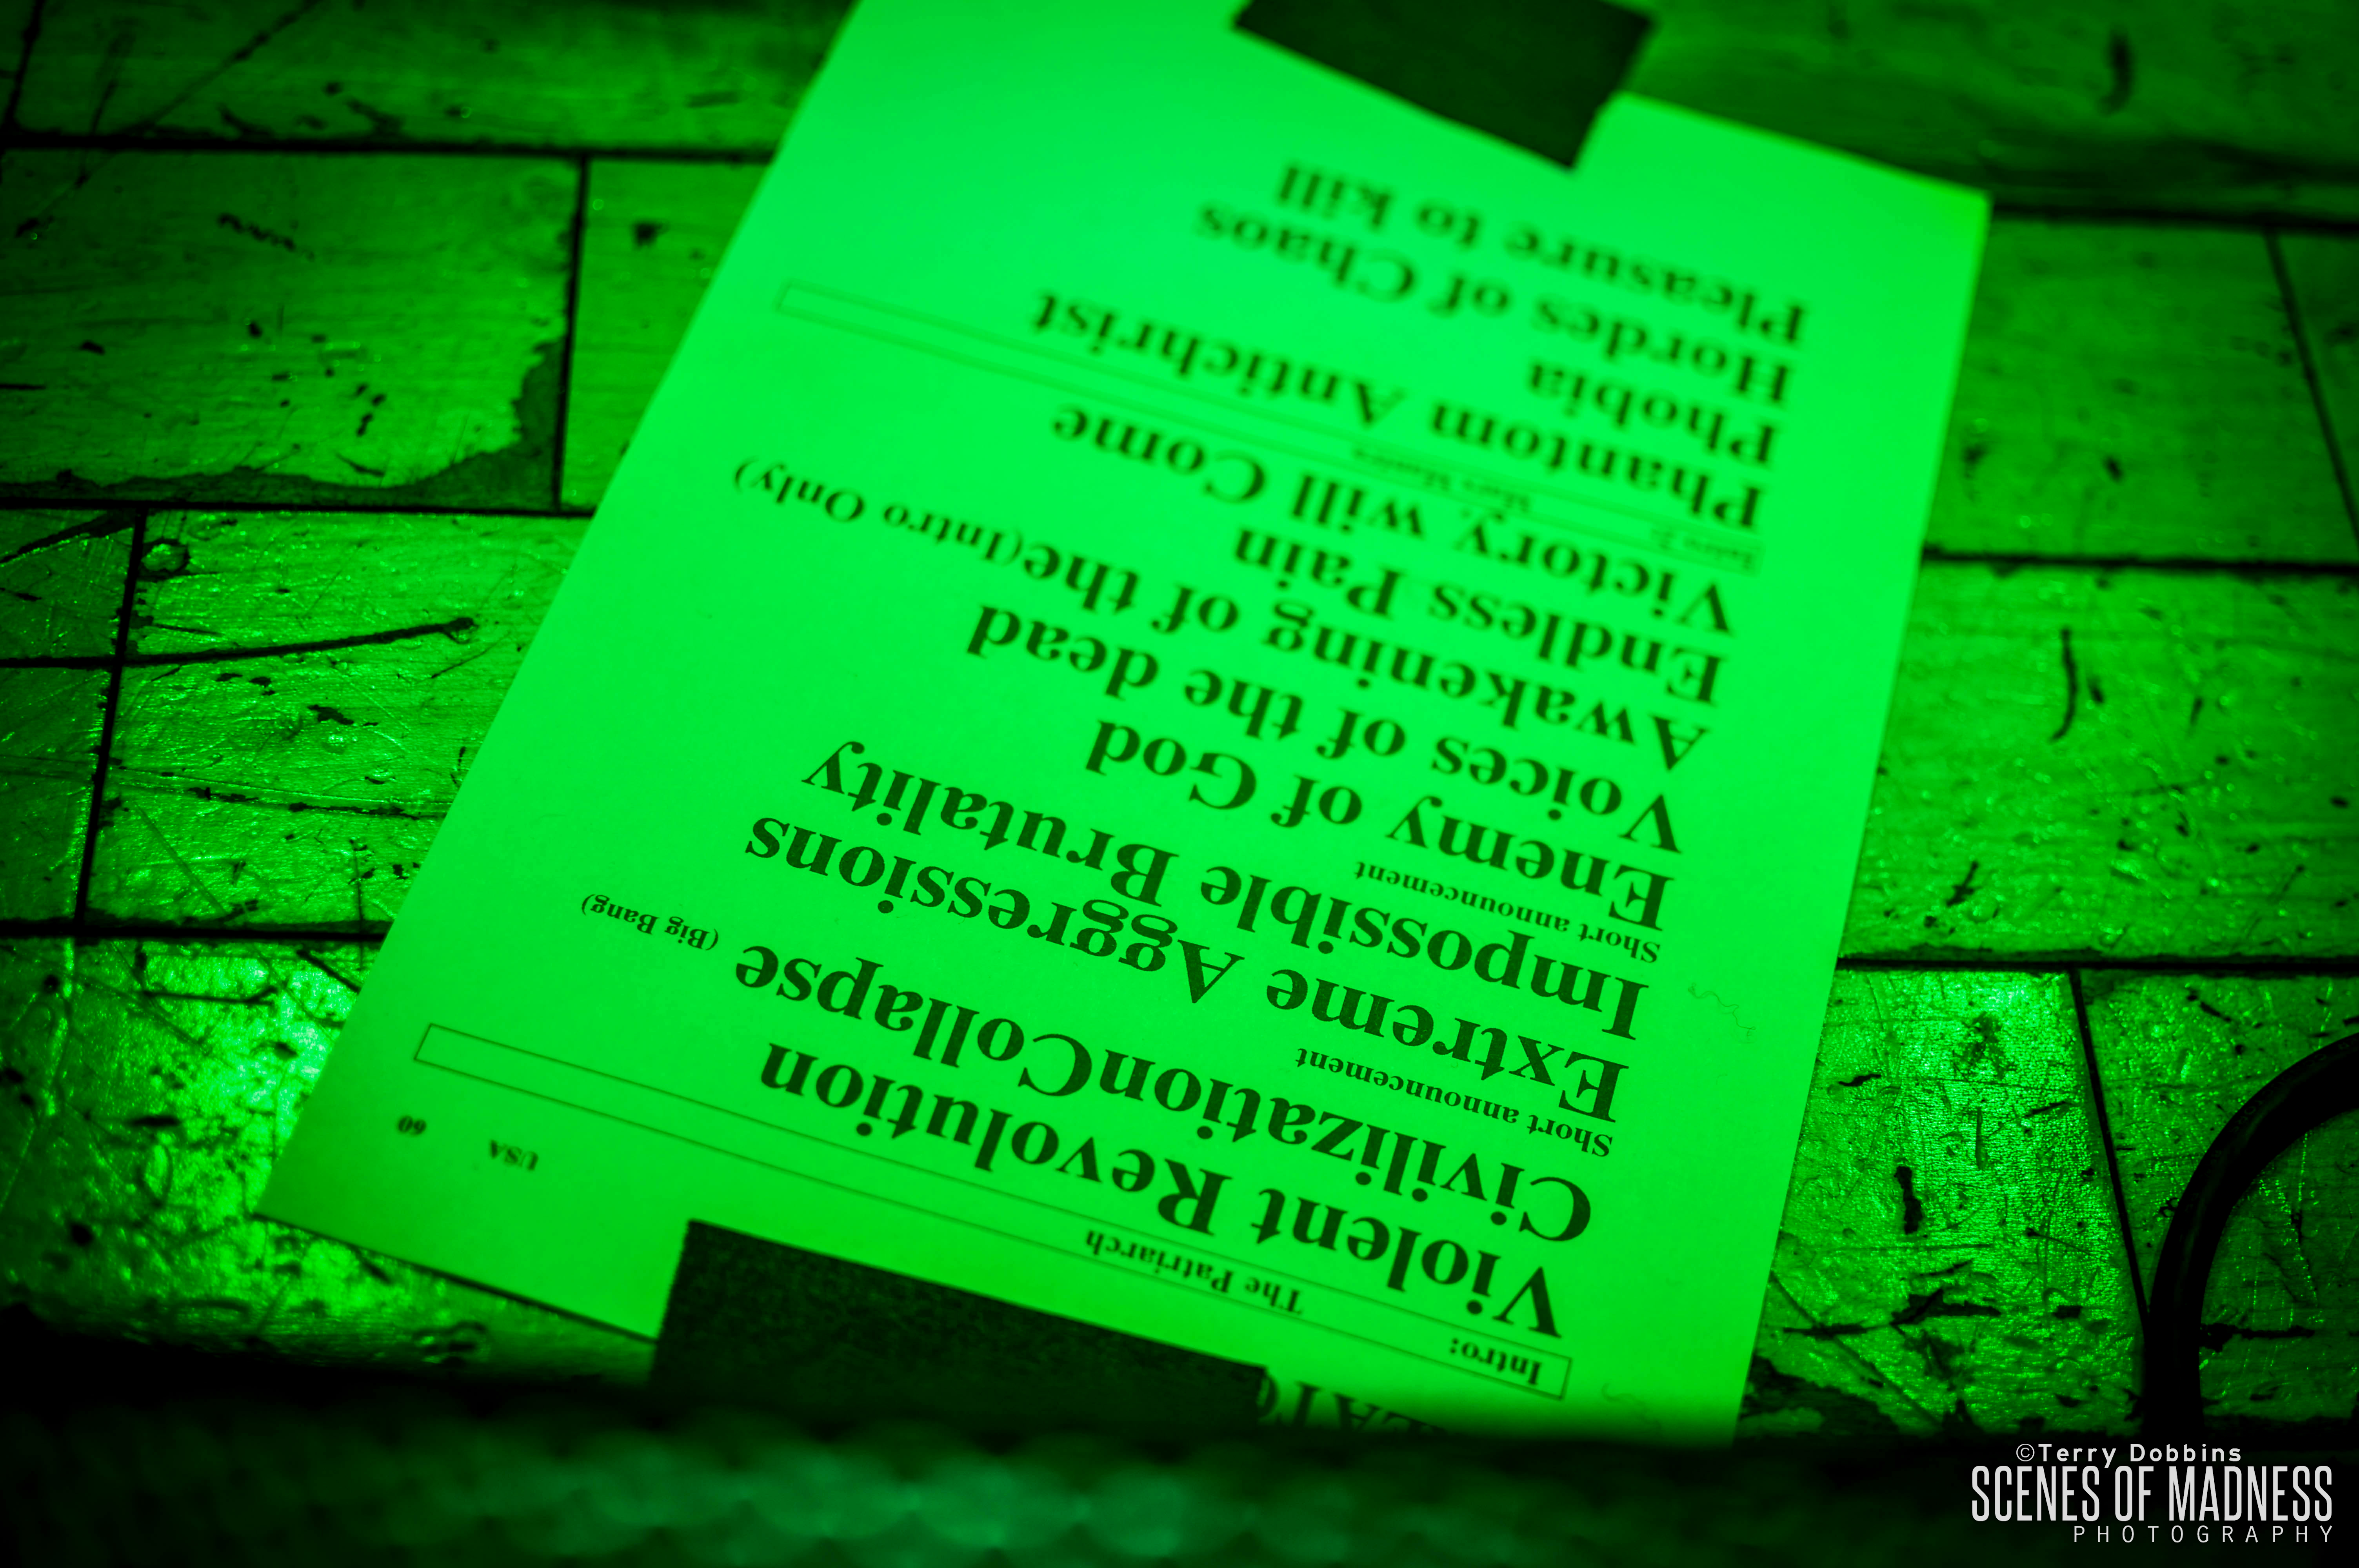 USA 60
Intro: The Patriarch
Violent Revolution
CivilizationCollapse (Big Bang)
Short announcement
Extreme Aggressions
Impossible Brutality
Short announcement
Enemy of God
Voices of the dead
Awakening of the(Intro Only)
Endless Pain
Victory will Come
Intro 2: Mars Mantra
Phantom Antichrist
Phobia
Hordes of Chaos
Pleasure to kill
©Terry Dobbins
SCENES OF MADNESS
PHOTOGRAPHY